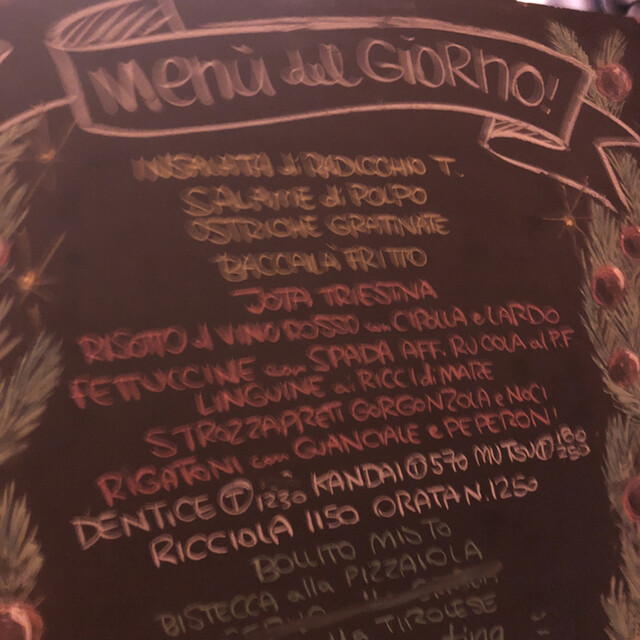 Menù del Giorno!
INSALATA di RADICCHIO T.
SALAME di POLPO
OSTRICHE GRATINATE
BACCALÀ FRITTO
JOTA TRIESTINA
RISOTTO al VINO ROSSO con CIPOLLA e LARDO
FETTUCCINE con SPADA AFF. RUCOLA al PF
LINGUINE ai RICCI di MARE
STROZZAPRETI GORGONZOLA e NOCI
RIGATONI con GIANCIALE e PEPERONI
DENTICE T 1230 KANDAI T 570 MUTSU
RICCIOLA 1150 ORATA N. 1250
BOLLITO MISTO
BISTECCA alla PIZZAIOLA
alla TIROLESE